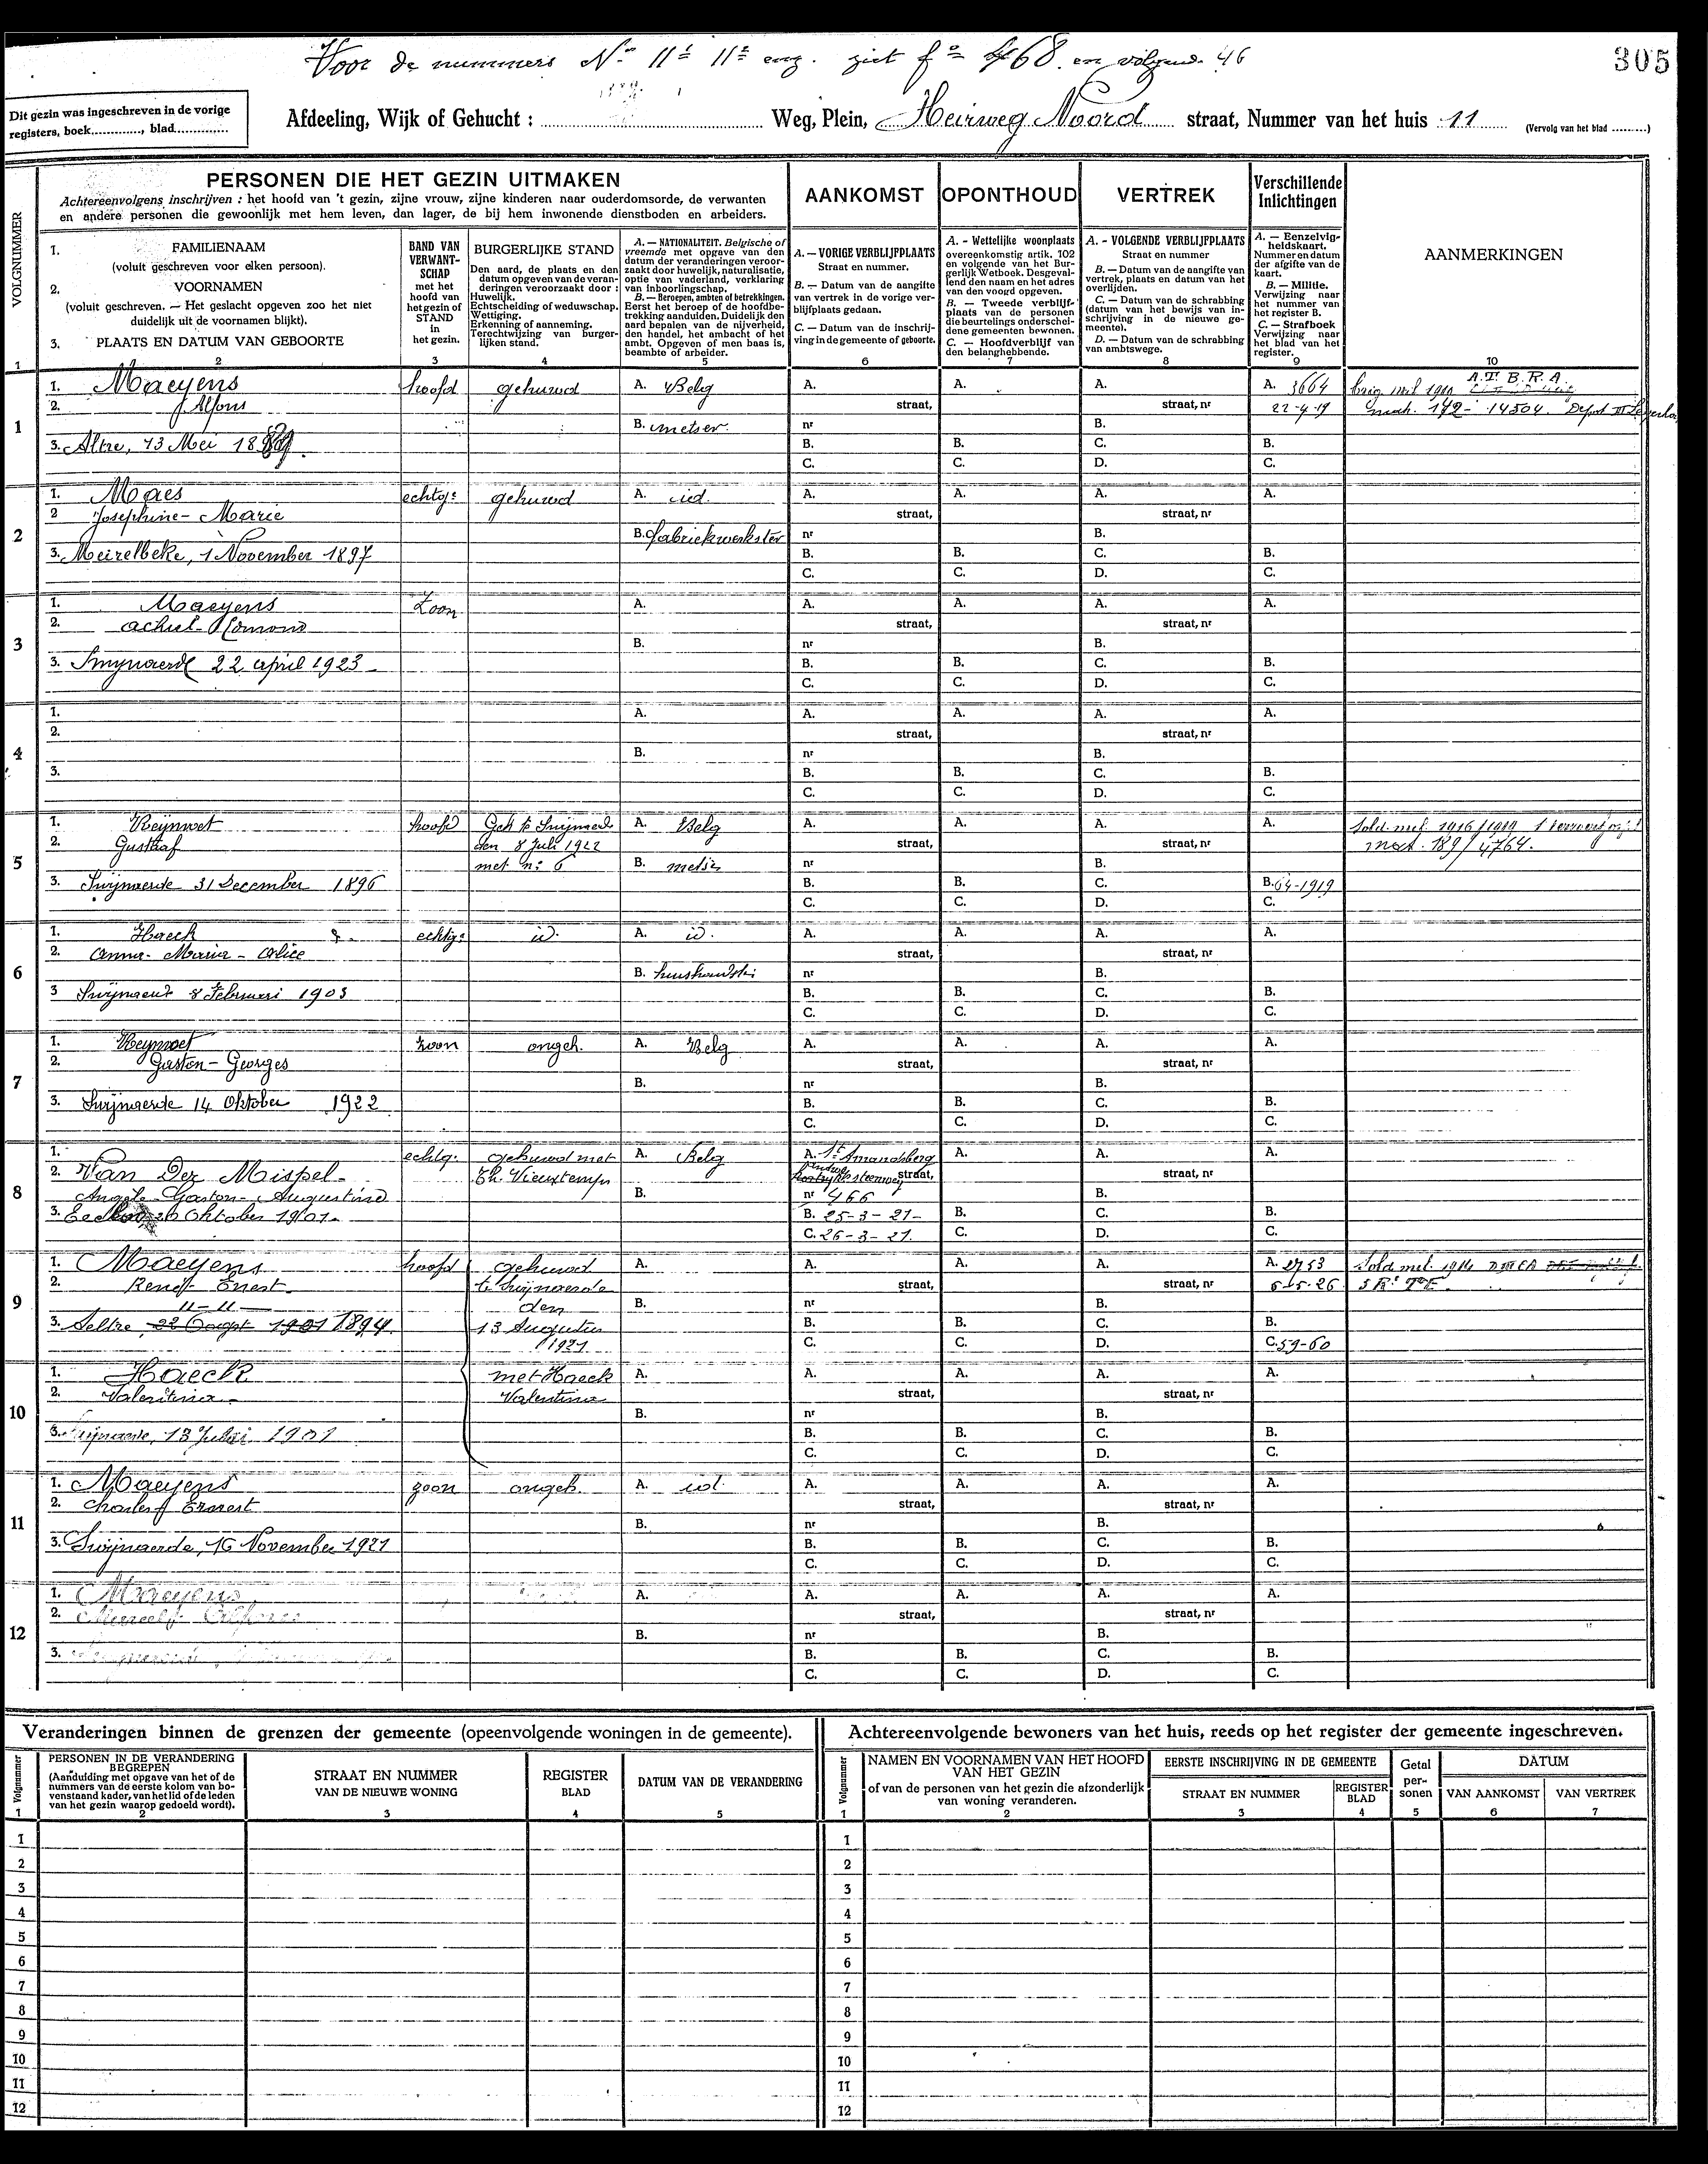 Voor de nummers N° 11' 11² enz. ziet f° 68 en volgend. 46
305
Dit gezin was ingeschreven in de vorige
registers, boek............, blad............
Afdeeling, Wijk of Gehucht : ............ Weg, Plein, Heirweg Noord straat, Nummer van het huis 11 (Vervolg van het blad .........)
PERSONEN DIE HET GEZIN UITMAKEN
Achtereenvolgens inschrijven : het hoofd van 't gezin, zijne vrouw, zijne kinderen naar ouderdomsorde, de verwanten
en andere personen die gewoonlijk met hem leven, dan lager, de bij hem inwonende dienstboden en arbeiders.
AANKOMST
OPONTHOUD
VERTREK
Verschillende
Inlichtingen
AANMERKINGEN
VOLGNUMMER
1
1. FAMILIENAAM
(voluit geschreven voor elken persoon).
2. VOORNAMEN
(voluit geschreven. — Het geslacht opgeven zoo het niet
duidelijk uit de voornamen blijkt).
3. PLAATS EN DATUM VAN GEBOORTE
2
BAND VAN
VERWANT-
SCHAP
met het
hoofd van
het gezin of
STAND
in
het gezin.
3
BURGERLIJKE STAND
Den aard, de plaats en den
datum opgeven van de veran-
deringen veroorzaakt door :
Huwelijk.
Echtscheiding of weduwschap.
Wettiging.
Erkenning of aanneming.
Terechtwijzing van burger-
lijken stand.
4
A. — NATIONALITEIT. Belgische of
vreemde met opgave van den
datum der veranderingen veroor-
zaakt door huwelijk, naturalisatie,
optie van vaderland, verklaring
van inboorlingschap.
B. — Beroepen, ambten of betrekkingen.
Eerst het beroep of de hoofdbe-
trekking aanduiden. Duidelijk den
aard bepalen van de nijverheid,
den handel, het ambacht of het
ambt. Opgeven of men baas is,
beambte of arbeider.
5
A. — VORIGE VERBLIJFPLAATS
Straat en nummer.
B. — Datum van de aangifte
van vertrek in de vorige ver-
blijfplaats gedaan.
C. — Datum van de inschrij-
ving in de gemeente of geboorte.
6
A. - Wettelijke woonplaats
overeenkomstig artik. 102
en volgende van het Bur-
gerlijk Wetboek. Desgeval-
lend den naam en het adres
van den voogd opgeven.
B. — Tweede verblijf-
plaats van de personen
die beurtelings onderschei-
dene gemeenten bewonen.
C. — Hoofdverblijf van
den belanghebbende.
7
A. - VOLGENDE VERBLIJFPLAATS
Straat en nummer
B. — Datum van de aangifte van
vertrek, plaats en datum van het
overlijden.
C. — Datum van de schrabbing
(datum van het bewijs van in-
schrijving in de nieuwe ge-
meente).
D. — Datum van de schrabbing
van ambtswege.
8
A. — Eenzelvig-
heidskaart.
Nummer en datum
der afgifte van de
kaart.
B. — Militie.
Verwijzing naar
het nummer van
het register B.
C. — Strafboek
Verwijzing naar
het blad van het
register.
9
10
1
1. Maeyens hoofd gehuwd A. Belg A. A. A. A. 3664 A.T. B.R.A.
2. Alfons straat, straat, nr 22-4-19
B. metser nr B.
3. Altre, 13 Mei B. B. C. B.
C. C. D. C.
2
1. Maes echtg: gehuwd A. id. A. A. A. A.
2 Josephine- Marie straat, straat, nr
B. fabriekwerkster nr B.
3. Meirelbeke, 1 November 1897 B. B. C. B.
C. C. D. C.
3
1. Maeyens Zoon A. A. A. A. A.
2. Achiel- Edmond straat, straat, nr
B. nr B.
3. Smynaerde 22 april 1923 B. B. C. B.
C. C. D. C.
4
1. A. A. A. A. A.
2. straat, straat, nr
B. nr B.
3. B. B. C. B.
C. C. D. C.
5
1. hoofd Geh te Swijnaerd A. Belg A. A. A. A. Sold. mil. 1916/1919
2. Gustaaf den 8 Juli 1922 straat, straat, nr 189/4764.
met n: 6 B. nr B.
3. Swijnaerde 31 December 1896 B. B. C. B. 64-1919
C. C. D. C.
6
1. Haeck echtg: id. A. id. A. A. A. A.
2. Anna- Maria- Alice straat, straat, nr
B. nr B.
3 Swijnaerde 8 Februari 1903 B. B. C. B.
C. C. D. C.
7
1. zoon ongeh. A. Belg A. A. A. A.
2. Gaston- Georges straat, straat, nr
B. nr B.
3. Swijnaerde 14 Oktober 1922 B. B. C. B.
C. C. D. C.
8
1. echtg: gehuwd met A. Belg A. St Amandsberg A. A. A.
2. Van Der Mispel Th. Vieuxtemps straat, straat, nr
Angele- Gaston- Augustine B. nr 466 B.
3. Eecloo, 26 Oktober 1901. B. 25-3-21- B. C. B.
C. 26-3-21. C. D. C.
9
1. Maeyens hoofd gehuwd A. A. A. A. A. 2753 Sold mil. 1914
2. René Ernest te Swijnaerde straat, straat, nr 6-5-26
11-11 den B. nr B.
3. Aeltre, 22 Oogst 1901 1894. 13 Augustus B. B. C. B.
1921 C. C. D. C. 59-60
10
1. Haeck met Haeck A. A. A. A. A.
2. Valentina Valentina straat, straat, nr
B. nr B.
3. Swijnaerde, 13 Juli 1901 B. B. C. B.
C. C. D. C.
11
1. Maeyens zoon ongeh. A. id. A. A. A. A.
2. Charles Ernest straat, straat, nr
B. nr B.
3. Swijnaerde, 16 November 1921 B. B. C. B.
C. C. D. C.
12
1. Maeyens A. A. A. A. A.
2. straat, straat, nr
B. nr B.
3. B. B. C. B.
C. C. D. C.
Veranderingen binnen de grenzen der gemeente (opeenvolgende woningen in de gemeente).
Volgnummer
1
PERSONEN IN DE VERANDERING
BEGREPEN
(Aanduiding met opgave van het of de
nummers van de eerste kolom van bo-
venstaand kader, van het lid of de leden
van het gezin waarop gedoeld wordt).
2
STRAAT EN NUMMER
VAN DE NIEUWE WONING
3
REGISTER
BLAD
4
DATUM VAN DE VERANDERING
5
1
2
3
4
5
6
7
8
9
10
11
12
Achtereenvolgende bewoners van het huis, reeds op het register der gemeente ingeschreven.
Volgnummer
1
NAMEN EN VOORNAMEN VAN HET HOOFD
VAN HET GEZIN
of van de personen van het gezin die afzonderlijk
van woning veranderen.
2
EERSTE INSCHRIJVING IN DE GEMEENTE
STRAAT EN NUMMER
3
REGISTER
BLAD
4
Getal
per-
sonen
5
DATUM
VAN AANKOMST
6
VAN VERTREK
7
1
2
3
4
5
6
7
8
9
10
11
12